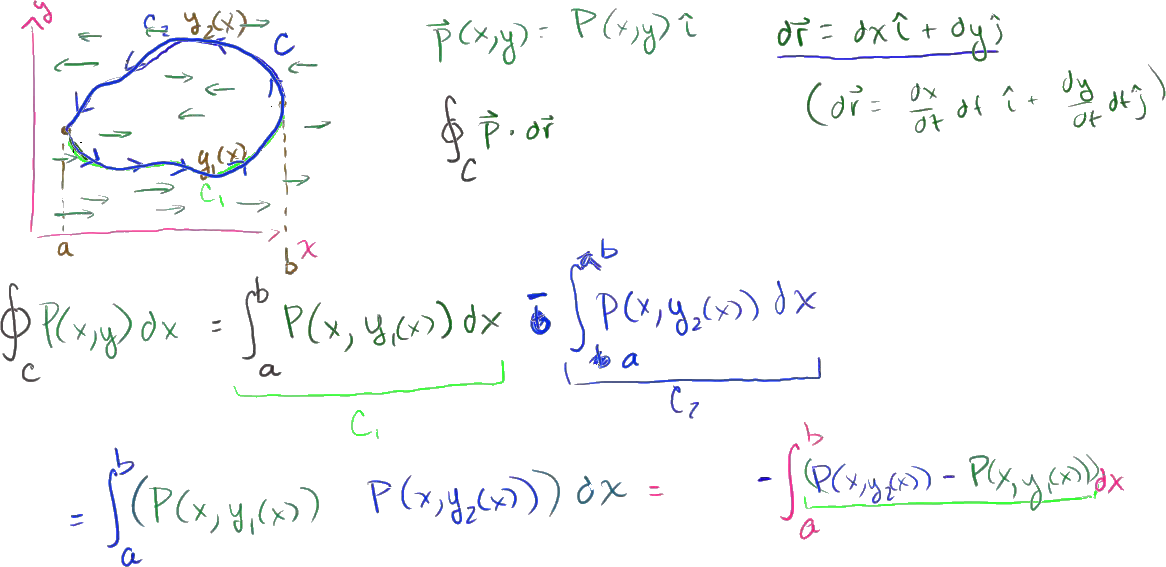 y
C₂ y₂(x) C
y₁(x)
C₁
a b x
p⃗(x,y) = P(x,y) î
dr⃗ = dx î + dy ĵ
(dr⃗ = dx/dt dt î + dy/dt dt ĵ)
∮_C p⃗ · dr⃗
∮_C P(x,y) dx = ∫_a^b P(x, y₁(x)) dx - ∫_a^b P(x, y₂(x)) dx
C₁ C₂
= ∫_a^b (P(x, y₁(x)) P(x, y₂(x))) dx = - ∫_a^b (P(x, y₂(x)) - P(x, y₁(x))) dx